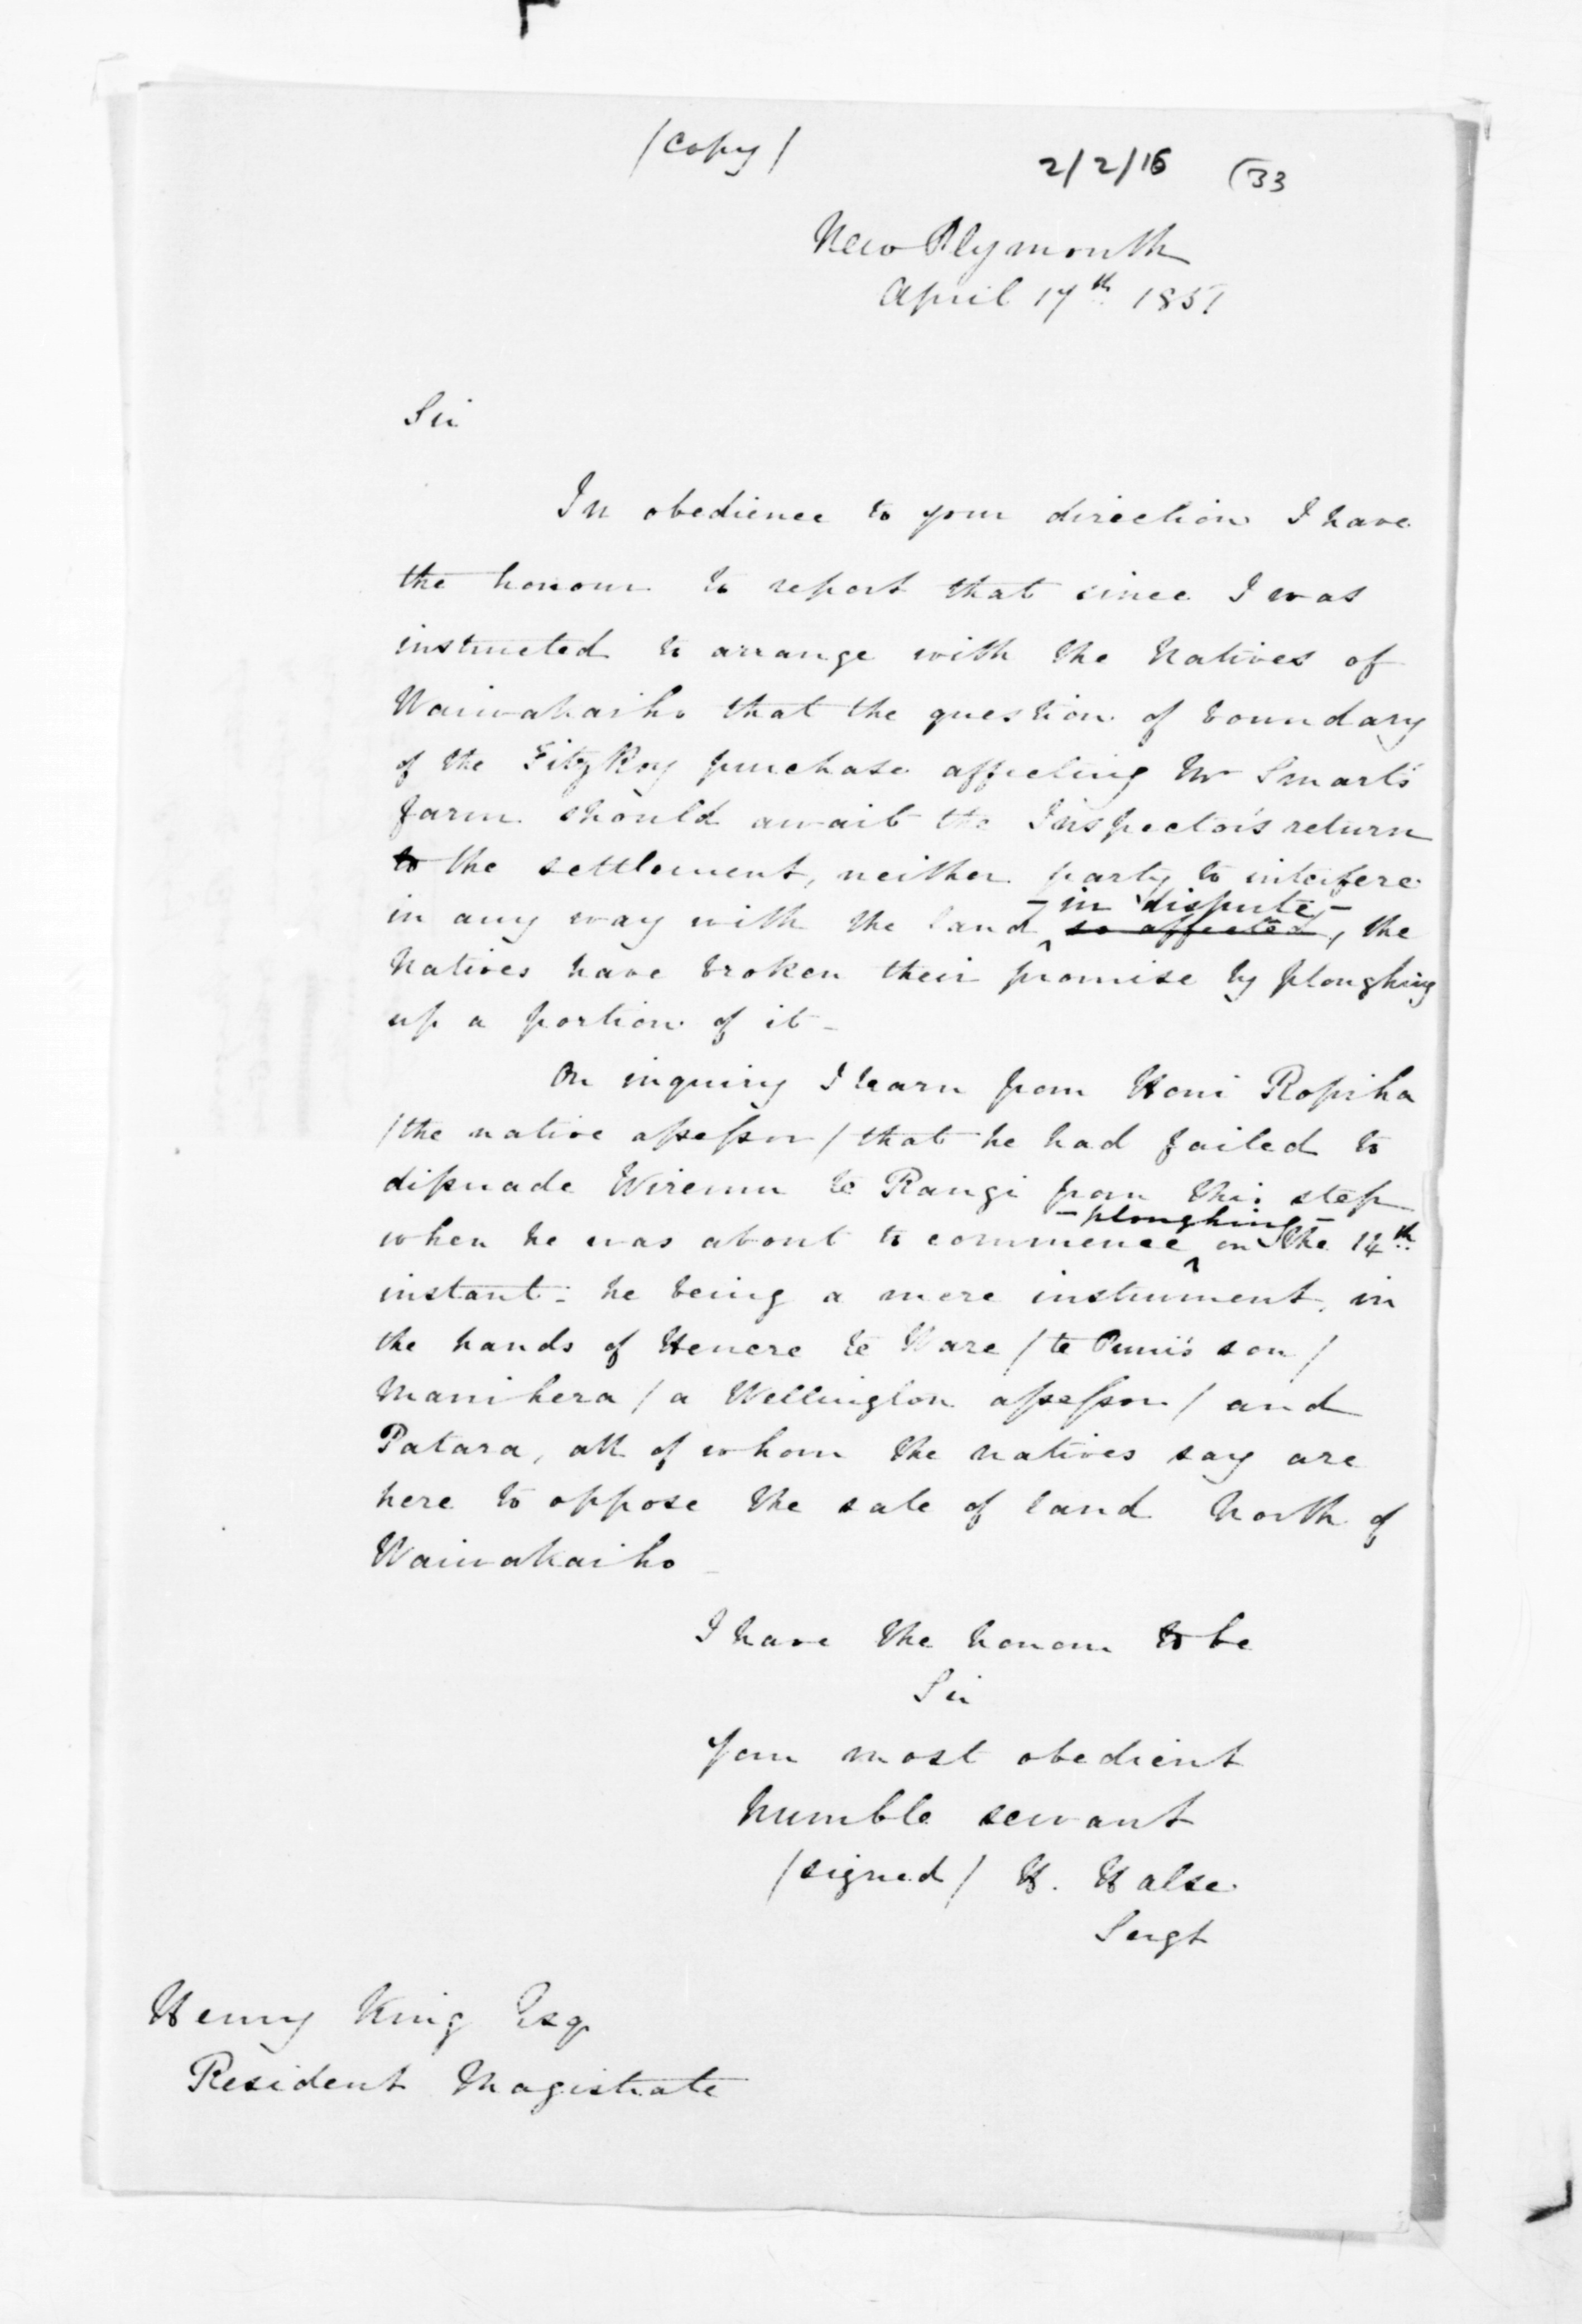 /Copy/
2/2/16 (33
New Plymouth
April 17th 1851
Sir
In obedience to your direction I have
the honour to report that since I was
instructed to arrange with the Natives of
Waiwakaiho that the question of boundary
of the FitzRoy purchase affecting Mr Smart's
farm should await the Inspector's return
to the settlement, neither party to interfere
- in dispute -
in any way with the land ^ so affected, the
Natives have broken their promise by ploughing
up a portion of it -
On inquiry I learn from Honi Ropiha
/the native assessor/ that he had failed to
dissuade Wiremu te Rangi from this step
- ploughing -
when he was about to commence ^ on the 14th
instant: he being a mere instrument, in
the hands of Henere te Ware /te Puni's son/
Manihera /a Wellington assessor/ and
Patara, all of whom the natives say are
here to oppose the sale of land North of
Waiwakaiho -
I have the honour to be
Sir
Your most obedient
humble servant
/signed/ H. Halse
Sergt
Henry King Esq
Resident Magistrate